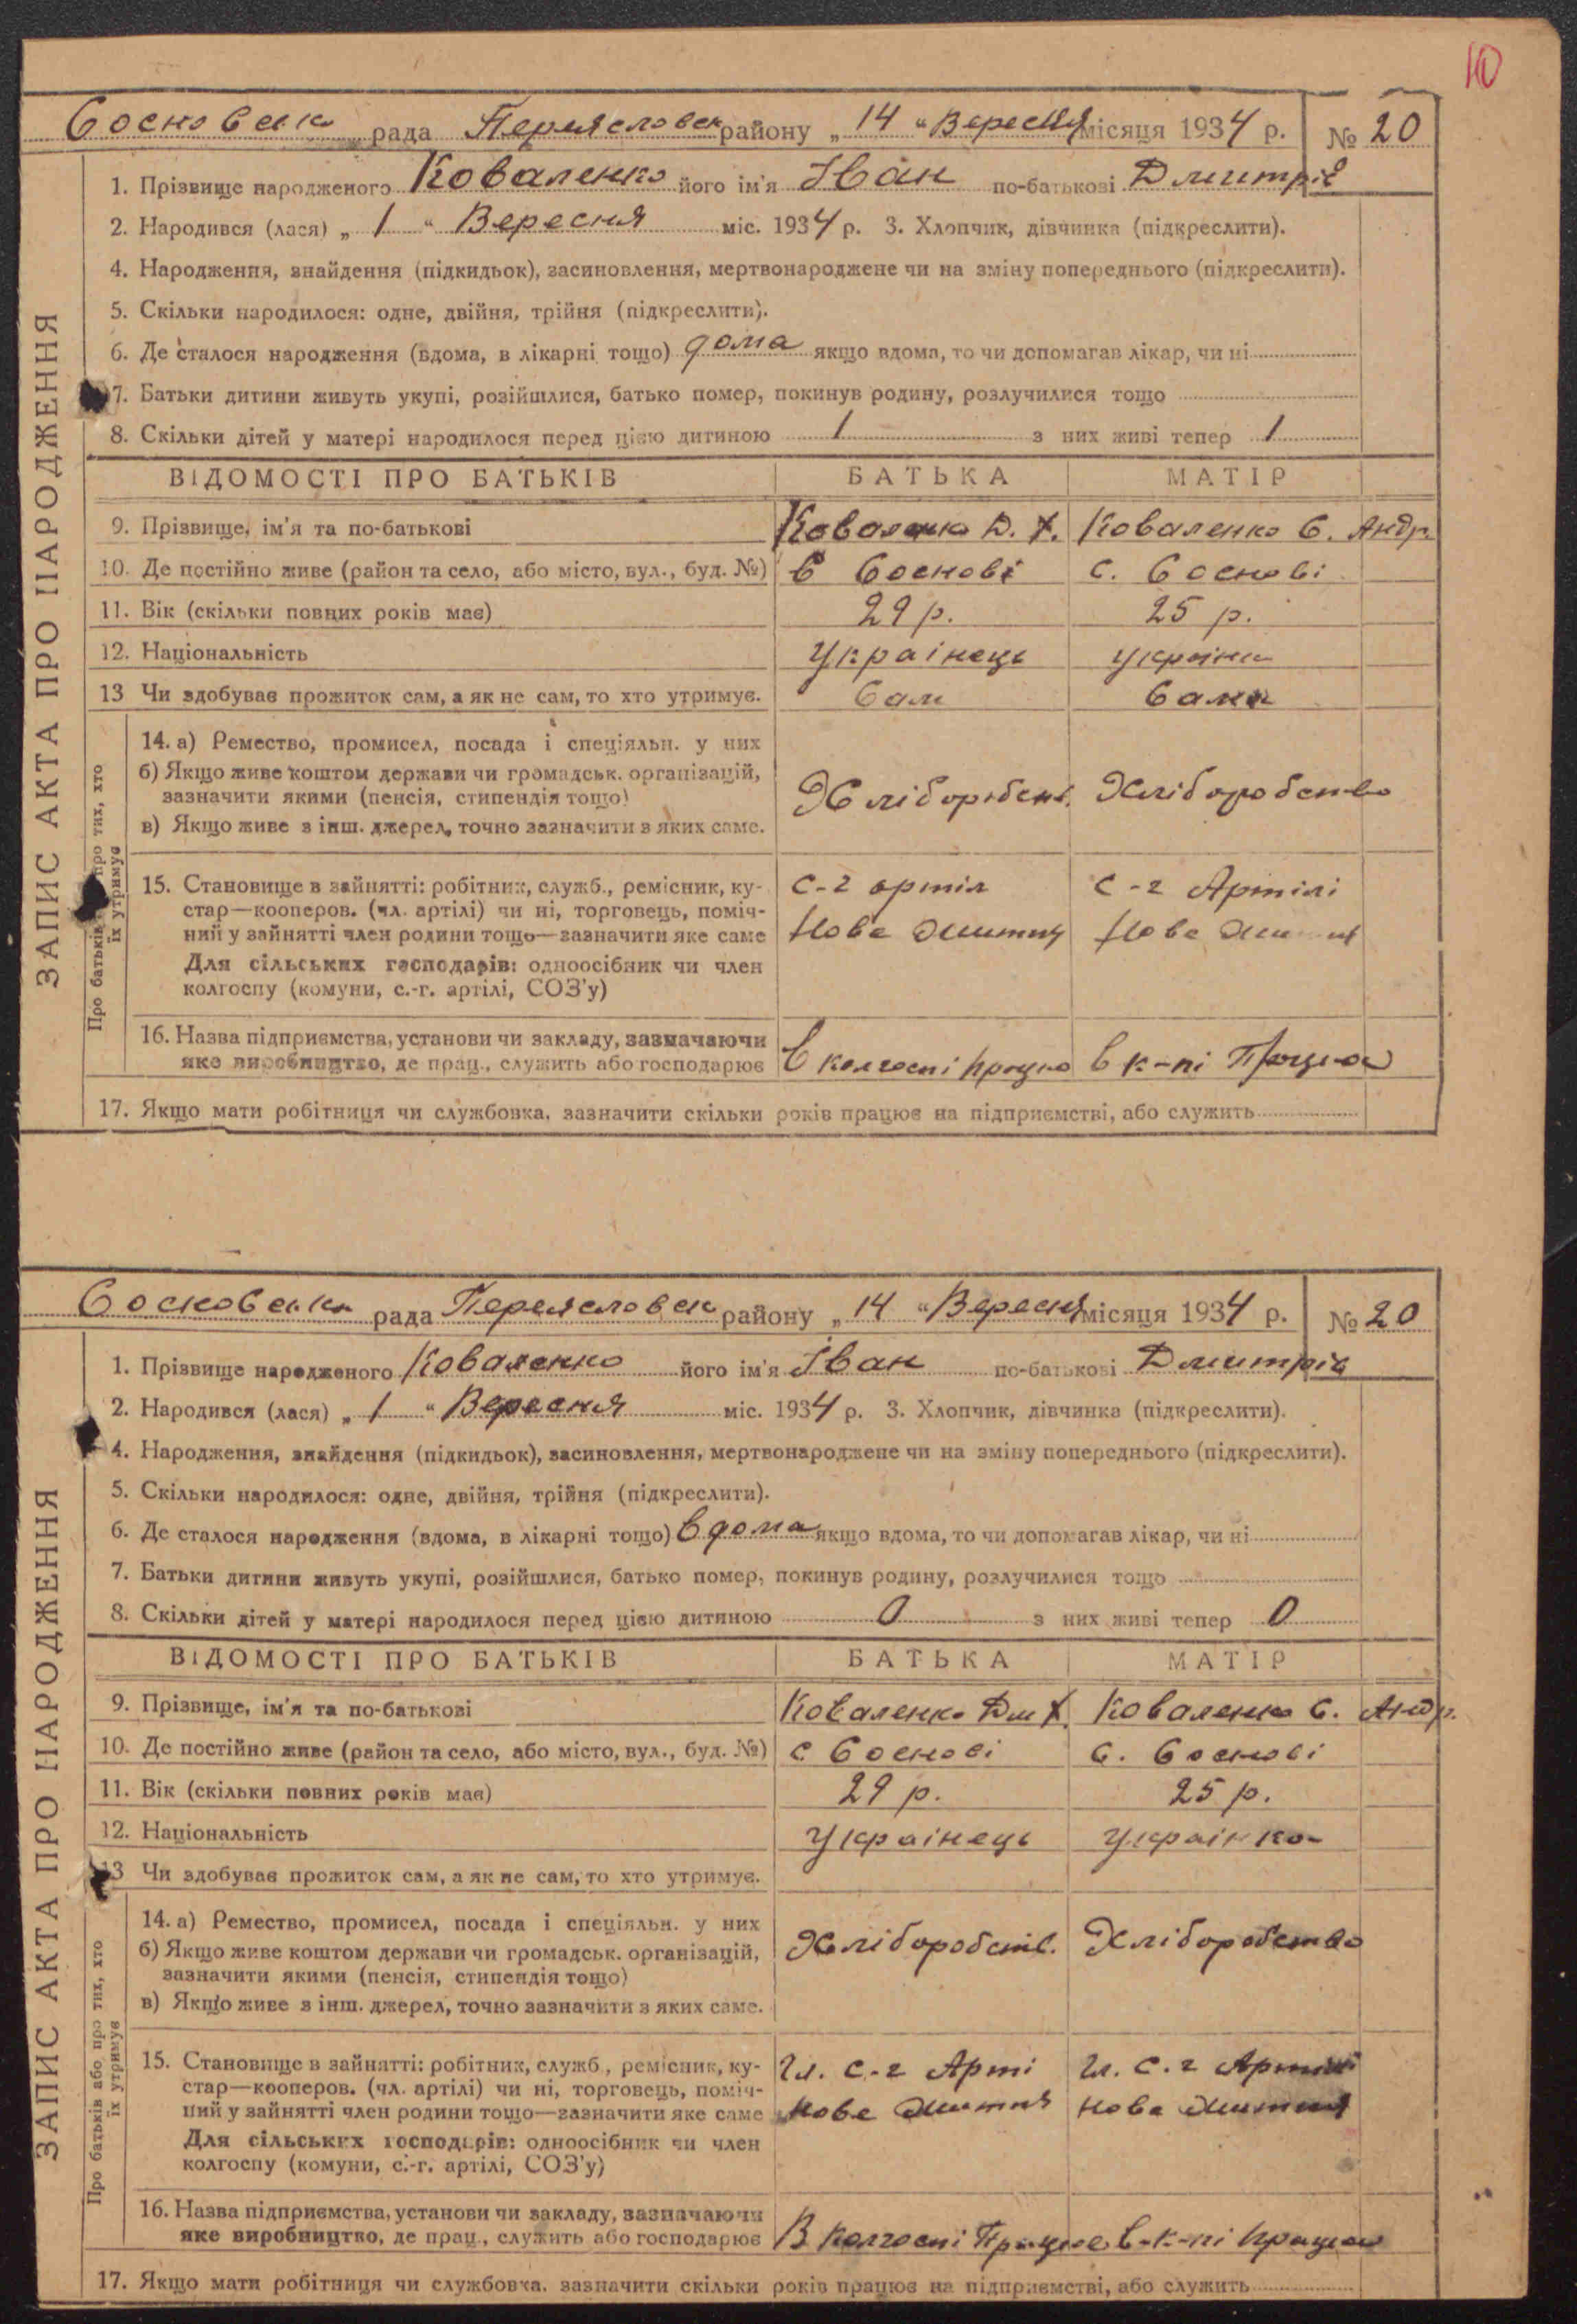 10
Сосновська рада Переяславськ району „ 14 “ Вересня місяця 1934 р. № 20
1. Прізвище народженого Коваленко його ім'я Іван по-батькові Дмитрів
2. Народився (лася) „ 1 “ Вересня міс. 1934 р. 3. Хлопчик, дівчинка (підкреслити).
4. Народження, знайдення (підкидьок), засиновлення, мертвонароджене чи на зміну попереднього (підкреслити).
5. Скільки народилося: одне, двійня, трійня (підкреслити).
6. Де сталося народження (вдома, в лікарні тощо) дома якщо вдома, то чи допомагав лікар, чи ні
7. Батьки дитини живуть укупі, розійшлися, батько помер, покинув родину, розлучилися тощо
8. Скільки дітей у матері народилося перед цією дитиною 1 з них живі тепер 1
ВІДОМОСТІ ПРО БАТЬКІВ БАТЬКА МАТІР
9. Прізвище, ім'я та по-батькові Коваленко Д. Х. Коваленко Є. Андр.
10. Де постійно живе (район та село, або місто, вул., буд. №) с Соснові с. Соснові
11. Вік (скільки повних років має) 29 р. 25 р.
12. Національність Українець українк
13 Чи здобуває прожиток сам, а як не сам, то хто утримує. Сам Сама
14. а) Ремество, промисел, посада і спеціяльн. у них
б) Якщо живе коштом держави чи громадськ. організацій,
зазначити якими (пенсія, стипендія тощо) Хліборобств. Хліборобство
в) Якщо живе з інш. джерел, точно зазначити з яких саме.
15. Становище в зайнятті: робітник, служб., ремісник, ку- с-г артіл с-г Артілі
стар—кооперов. (чл. артілі) чи ні, торговець, поміч-
ний у зайнятті член родини тощо—зазначити яке саме Нове Життя Нове Життя
Для сільських господарів: одноосібник чи член
колгоспу (комуни, с.-г. артілі, СОЗ'у)
16. Назва підприємства, установи чи закладу, зазначаючи
яке виробництво, де прац., служить або господарює в колгоспі працює в к-пі Працює
17. Якщо мати робітниця чи службовка, зазначити скільки років працює на підприємстві, або служить
ЗАПИС АКТА ПРО НАРОДЖЕННЯ
Про батьків про тих, хто
їх утримує
Сосновська рада Переяславськ району „ 14 “ Вересня місяця 1934 р. № 20
1. Прізвище народженого Коваленко його ім'я Іван по-батькові Дмитрів
2. Народився (лася) „ 1 “ Вересня міс. 1934 р. 3. Хлопчик, дівчинка (підкреслити).
4. Народження, знайдення (підкидьок), засиновлення, мертвонароджене чи на зміну попереднього (підкреслити).
5. Скільки народилося: одне, двійня, трійня (підкреслити).
6. Де сталося народження (вдома, в лікарні тощо) вдома якщо вдома, то чи допомагав лікар, чи ні
7. Батьки дитини живуть укупі, розійшлися, батько помер, покинув родину, розлучилися тощо
8. Скільки дітей у матері народилося перед цією дитиною 0 з них живі тепер 0
ВІДОМОСТІ ПРО БАТЬКІВ БАТЬКА МАТІР
9. Прізвище, ім'я та по-батькові Коваленко Дм Х. Коваленко Є. Андр.
10. Де постійно живе (район та село, або місто, вул., буд. №) с Соснові с. Соснові
11. Вік (скільки повних років має) 29 р. 25 р.
12. Національність Українець Українка
13 Чи здобуває прожиток сам, а як не сам, то хто утримує.
14. а) Ремество, промисел, посада і спеціяльн. у них
б) Якщо живе коштом держави чи громадськ. організацій, Хліборобств. Хліборобство
зазначити якими (пенсія, стипендія тощо)
в) Якщо живе з інш. джерел, точно зазначити з яких саме.
15. Становище в зайнятті: робітник, служб., ремісник, ку- Чл. с-г Арті Чл. с.г Артілі
стар—кооперов. (чл. артілі) чи ні, торговець, поміч-
ний у зайнятті член родини тощо—зазначити яке саме Нове Життя Нове Життя
Для сільських господарів: одноосібник чи член
колгоспу (комуни, с.-г. артілі, СОЗ'у)
16. Назва підприємства, установи чи закладу, зазначаючи
яке виробництво, де прац., служить або господарює В колгоспі Працює в-к-пі працює
17. Якщо мати робітниця чи службовка, зазначити скільки років працює на підприємстві, або служить
ЗАПИС АКТА ПРО НАРОДЖЕННЯ
Про батьків або про тих, хто
їх утримує